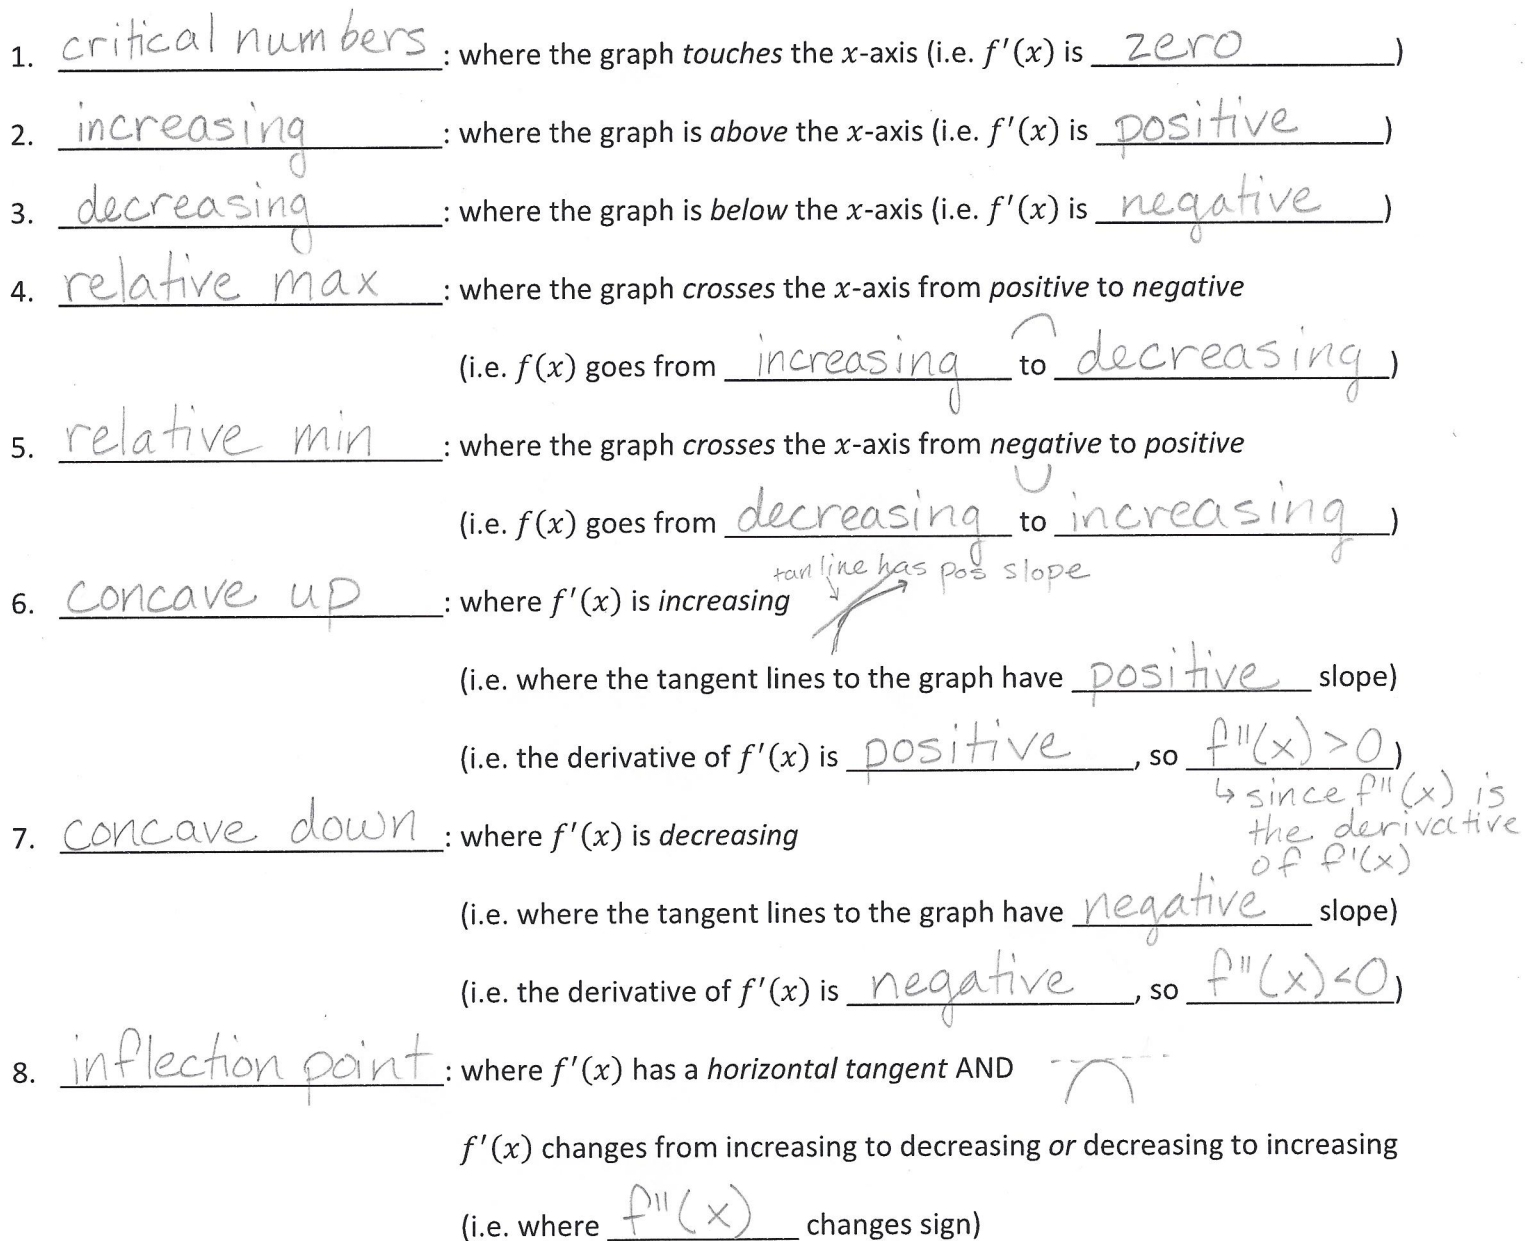 1. critical numbers : where the graph touches the x-axis (i.e. f'(x) is zero )
2. increasing : where the graph is above the x-axis (i.e. f'(x) is positive )
3. decreasing : where the graph is below the x-axis (i.e. f'(x) is negative )
4. relative max : where the graph crosses the x-axis from positive to negative
(i.e. f(x) goes from increasing to decreasing )
5. relative min : where the graph crosses the x-axis from negative to positive
(i.e. f(x) goes from decreasing to increasing )
tan line has pos slope
6. concave up : where f'(x) is increasing
(i.e. where the tangent lines to the graph have positive slope)
(i.e. the derivative of f'(x) is positive , so f''(x) >0 )
↳ since f''(x) is
the derivative
of f'(x)
7. concave down : where f'(x) is decreasing
(i.e. where the tangent lines to the graph have negative slope)
(i.e. the derivative of f'(x) is negative , so f''(x)<0 )
8. inflection point : where f'(x) has a horizontal tangent AND
f'(x) changes from increasing to decreasing or decreasing to increasing
(i.e. where f''(x) changes sign)